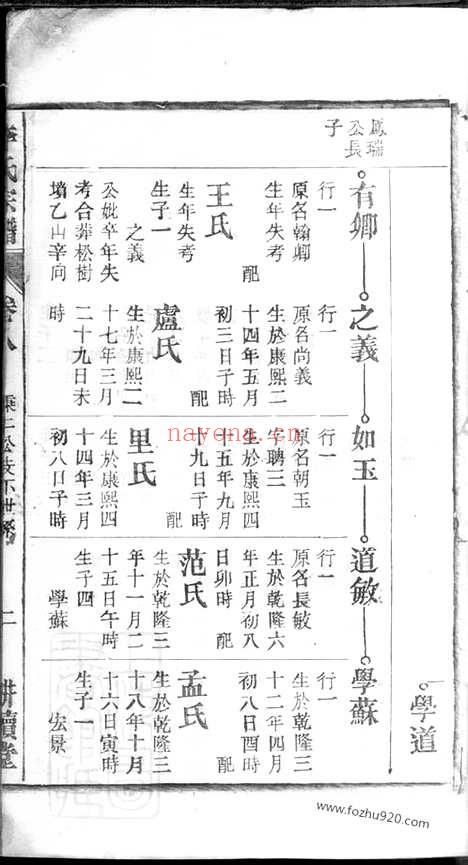 學道
鳳瑞
公長
子
有卿
行一
原名翰卿
生年失考
配
王氏
生年失考
生子一
之義
公妣卒年失
考合葬松樹
墳乙山辛向
之義
行一
原名尚義
生於康熙二
十四年五月
初三日子時
配
盧氏
生於康熙二
十七年三月
二十九日未
時
如玉
行一
原名朝玉
字聘三
生於康熙四
十五年九月
十九日子時
配
里氏
生於康熙四
十四年三月
初八日子時
道敏
行一
原名長敏
生於乾隆六
年正月初八
日卯時
配
范氏
生於乾隆三
年十一月二
十五日午時
生子四
學蘇
學蘇
行一
生於乾隆三
十二年四月
初八日酉時
配
孟氏
生於乾隆三
十八年十月
十六日寅時
生子一
宏景
氏宗譜
卷八
公支下世系
二
耕讀堂
nayona.cn
www.fozhu920.com